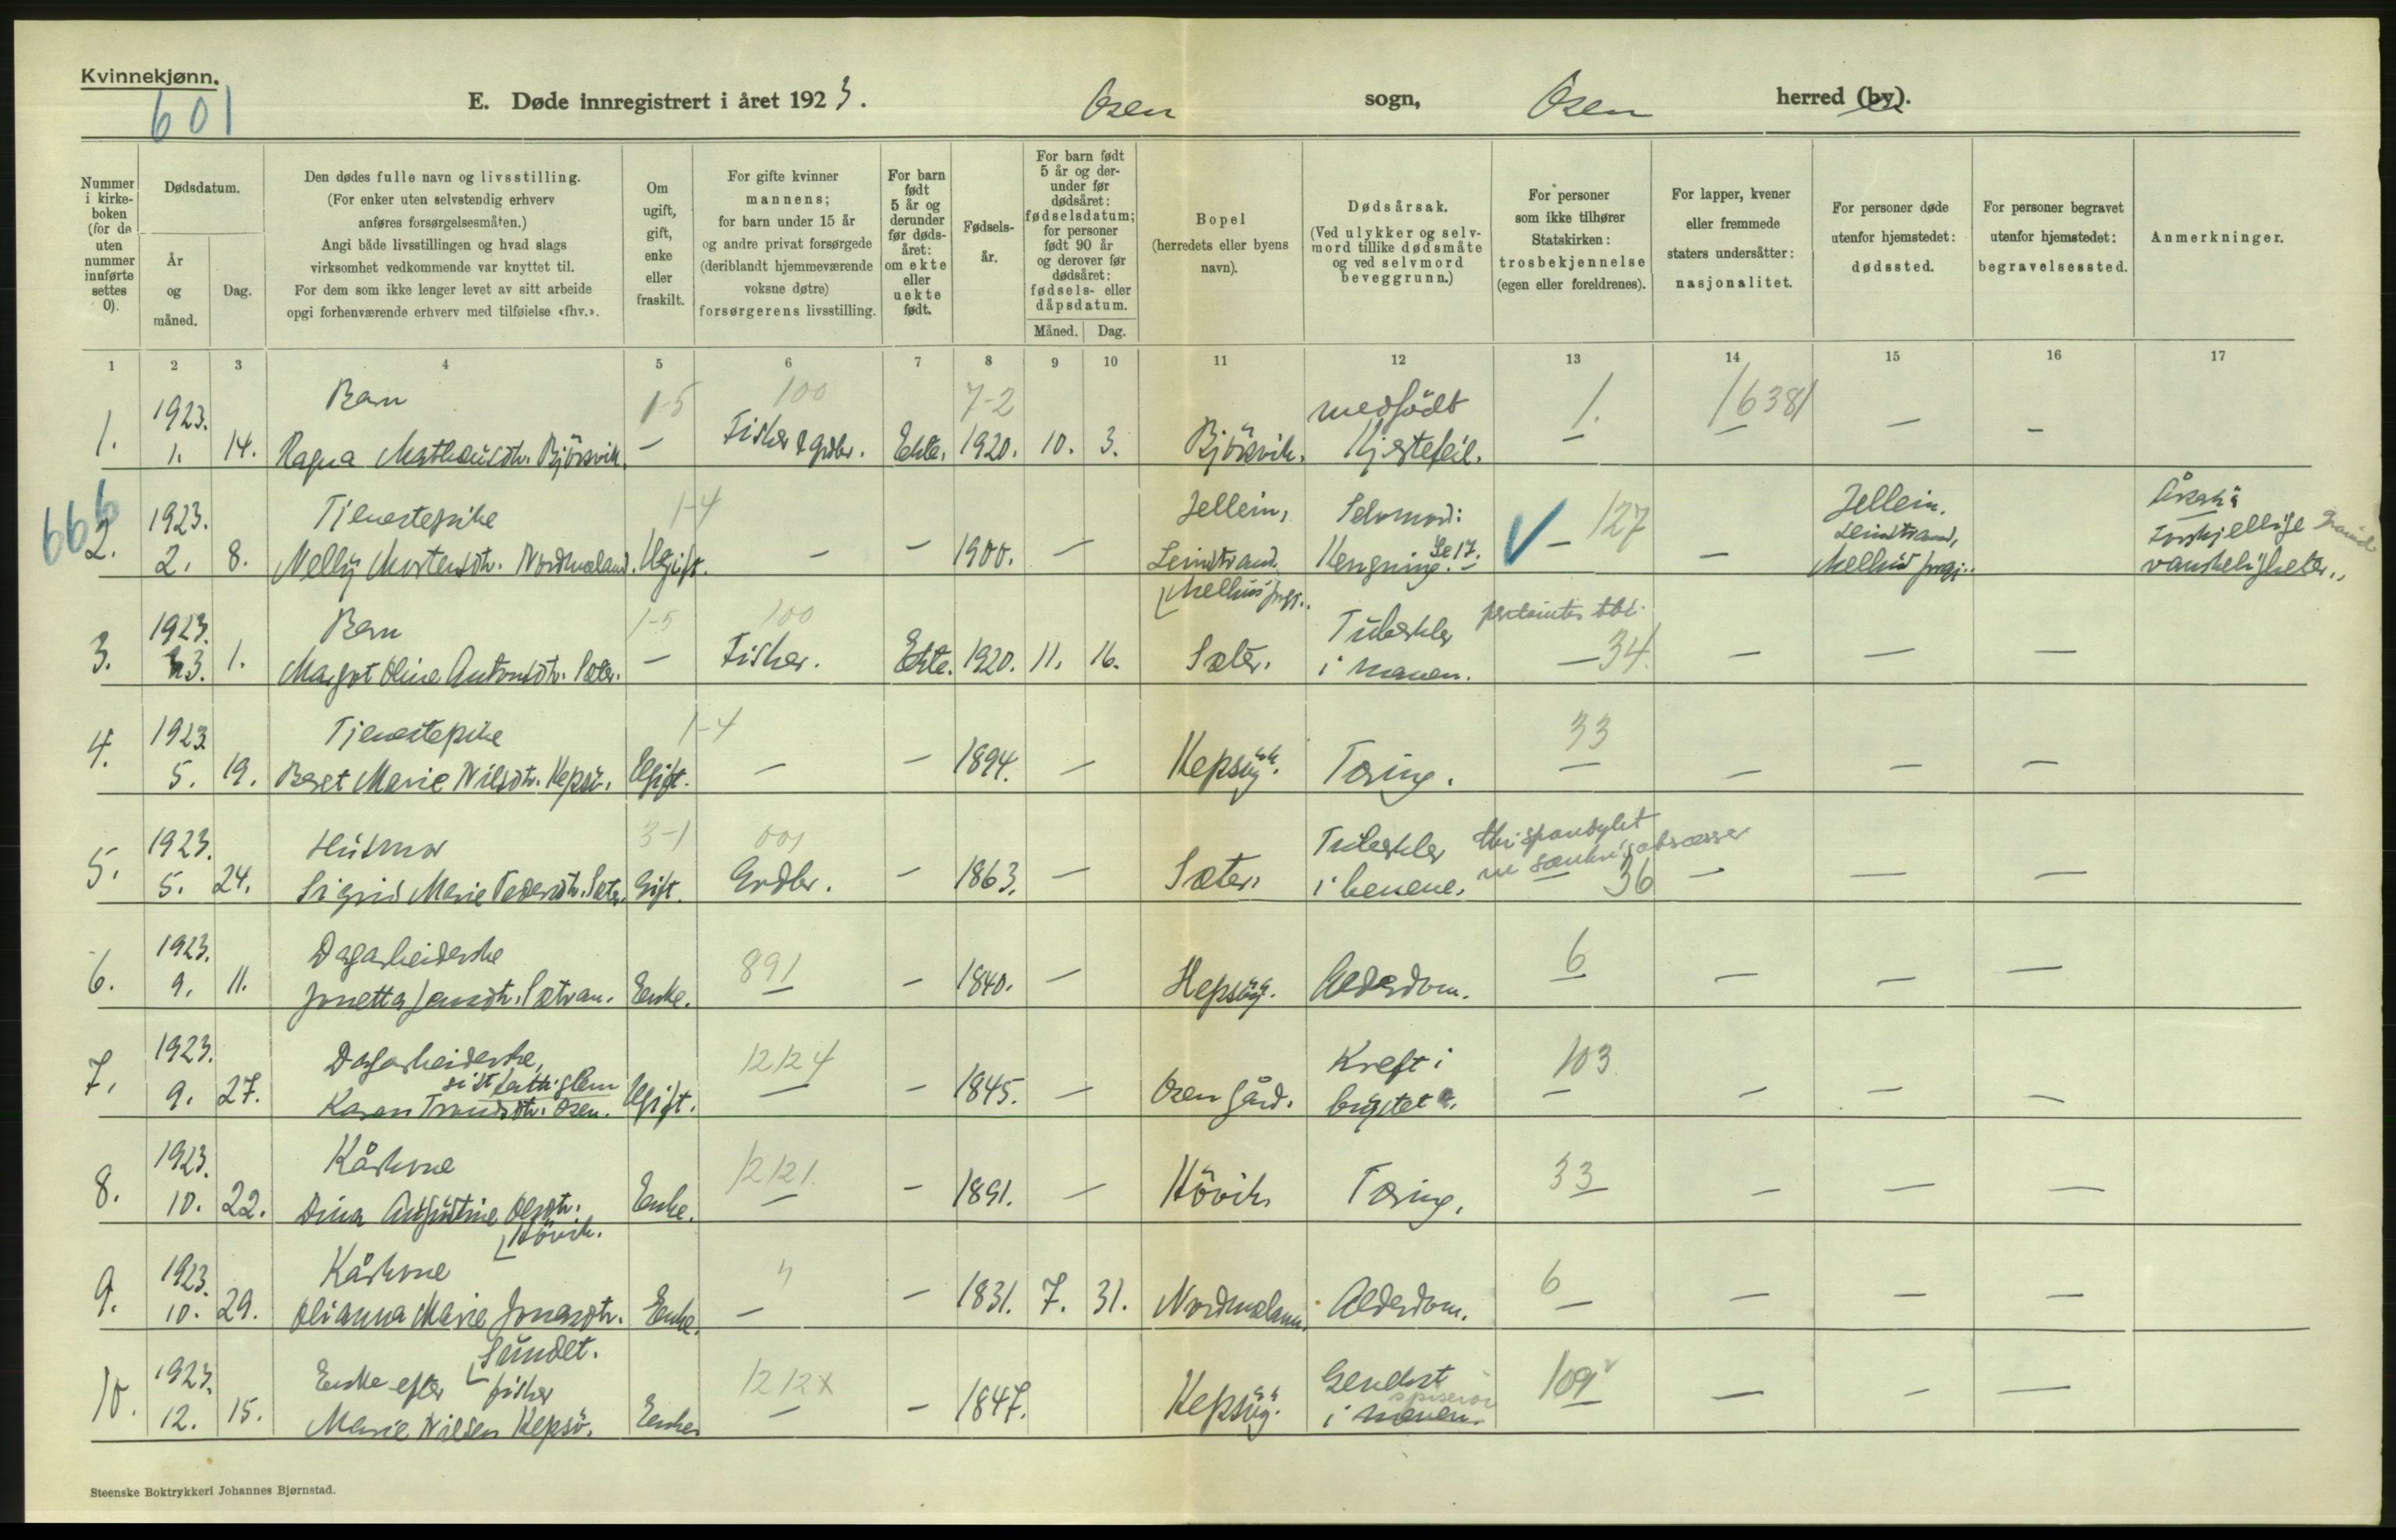 Kvinnekjønn.
601
E. Døde innregistrert i året 1923. Osen sogn, Osen herred (by).
Nummer i kirkeboken (for de uten nummer innførte settes 0).
Dødsdatum.
År og måned.
Dag.
Den dødes fulle navn og livsstilling.
(For enker uten selvstendig erhverv
anføres forsørgelsesmåten.)
Angi både livsstillingen og hvad slags
virksomhet vedkommende var knyttet til.
For dem som ikke lenger levet av sitt arbeide
opgi forhenværende erhverv med tilføielse «fhv.».
Om ugift, gift, enke eller fraskilt.
For gifte kvinner
mannens;
for barn under 15 år
og andre privat forsørgede
(deriblandt hjemmeværende
voksne døtre)
forsørgerens livsstilling.
For barn født 5 år og derunder før dødsåret: om ekte eller uekte født.
Fødselsår.
For barn født 5 år og derunder før dødsåret: fødselsdatum; for personer født 90 år og derover før dødsåret: fødsels- eller dåpsdatum.
Måned. Dag.
Bopel
(herredets eller byens
navn).
Dødsårsak.
(Ved ulykker og selv-
mord tillike dødsmåte
og ved selvmord
beveggrunn.)
For personer
som ikke tilhører
Statskirken:
trosbekjennelse
(egen eller foreldrenes).
For lapper, kvener
eller fremmede
staters undersåtter:
nasjonalitet.
For personer døde
utenfor hjemstedet:
dødssted.
For personer begravet
utenfor hjemstedet:
begravelsessted.
Anmerkninger.
1 2 3 4 5 6 7 8 9 10 11 12 13 14 15 16 17
1923. Barn 1-5 100 7-2 medfödt 1. 16381
1. 1. 14. Ragna Mathæusdtr. Björsvik. — Fisker & grdbr. Ekte. 1920. 10. 3. Björsvik. Hjertefeil. — — — —
666
1923. Tjenestepike 1-4 Jellein, Selvmord: 127 Jellein, Årsak:
2. 2. 8. Nelly Mortensdtr. Nordmeland. Ugift. — — 1900. — Leinstrand Hengning. Se 17. — — Leinstrand, Forskjellige
Melhus prgj. Melhus prgj. vanskeligheter.
1923. Barn 1-5 100 Tuberkler tbc. 34.
3. 3. 1. Margot Oline Antonsdtr. Sæter. — Fisker. Ekte. 1920. 11. 16. Sæter. i maven. — — — —
1923 Tjenestepike 1-4 33
4. 5. 19. Beret Marie Nilsdtr. Kepsö. Ugift. — — 1894. — Kepsöy. Tæring. — — — —
1923. Husmor 3-1 001 Tuberkler 36
5. 5. 24. Sigrid Marie Pedersdtr. Sæter. Gift. Grdbr. — 1863. — Sæter. i benene. — — — —
1923. Dagarbeiderske 891 6
6. 9. 11. Jonetta Jensdtr. Sætran. Enke. — — 1840. — Hepsöy. Alderdom. — — — —
1923. Dagarbeiderske, 12124 Kreft i 103
sist fattiglem
7. 9. 27. Karen Trondsdtr. Osen. Ugift. — — 1845. — Osen gård. brystet. — — — —
1923. Kårkone 12121. 33
8. 10. 22. Dina Augustine Olsdtr. Enke. — — 1851. — Hövik Tæring. — — — —
Hövik.
1923. Kårkone 6
9. 10. 29. Olianna Marie Jonasdtr. Enke. — — 1831. 7. 31. Nordmeland. Alderdom. — — — —
Sundet.
1923. Enke efter fisker 1212x 109
10. 12. 15. Marie Nilsen Kepsö. Enke — — 1847. Kepsöy. i maven. — — — —
spiserör
Steenske Boktrykkeri Johannes Bjørnstad.